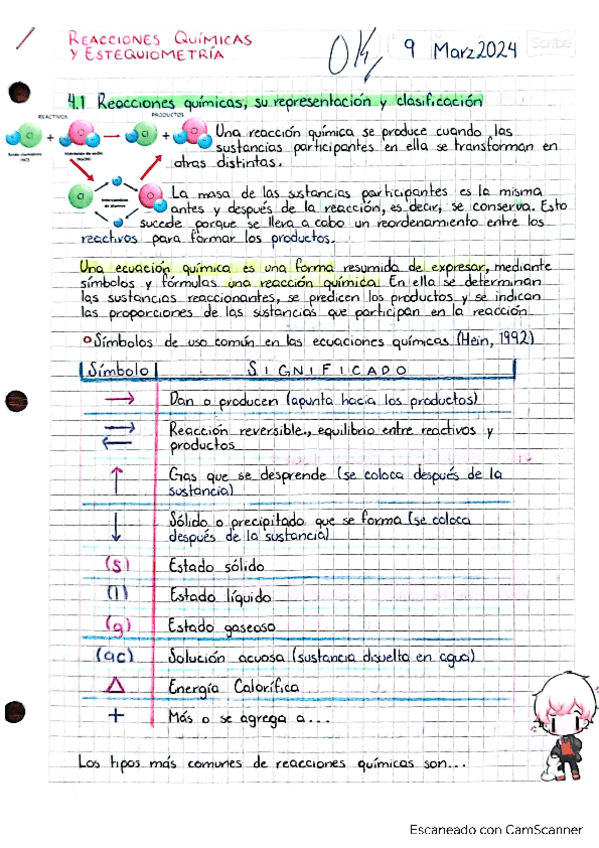 REACCIONES QUÍMICAS
Y ESTEQUIOMETRÍA
OK
9 Marzo 2024
Scribe
4.1 Reacciones químicas, su representación y clasificación
REACTIVOS
PRODUCTOS
Una reacción química se produce cuando las
sustancias participantes en ella se transforman en
otras distintas.
La masa de las sustancias participantes es la misma
antes y después de la reacción, es decir, se conserva. Esto
sucede porque se lleva a cabo un reordenamiento entre los
reactivos para formar los productos.
Una ecuación química es una forma resumida de expresar, mediante
símbolos y fórmulas una reacción química. En ella se determinan
las sustancias reaccionantes, se predicen los productos y se indican
las proporciones de las sustancias que participan en la reacción.
Símbolos de uso común en las ecuaciones químicas (Hein, 1992)
Símbolo | SIGNIFICADO
→ Dan o producen (apunta hacia los productos)
⇄ Reacción reversible., equilibrio entre reactivos y
productos
↑ Gas que se desprende (se coloca después de la
sustancia)
↓ Sólido o precipitado que se forma (se coloca
después de la sustancia)
(s) Estado sólido
(l) Estado líquido
(g) Estado gaseoso
(ac) Solución acuosa (sustancia disuelta en agua)
△ Energía Calorífica
+ Más o se agrega a...
Los tipos más comunes de reacciones químicas son...
Escaneado con CamScanner